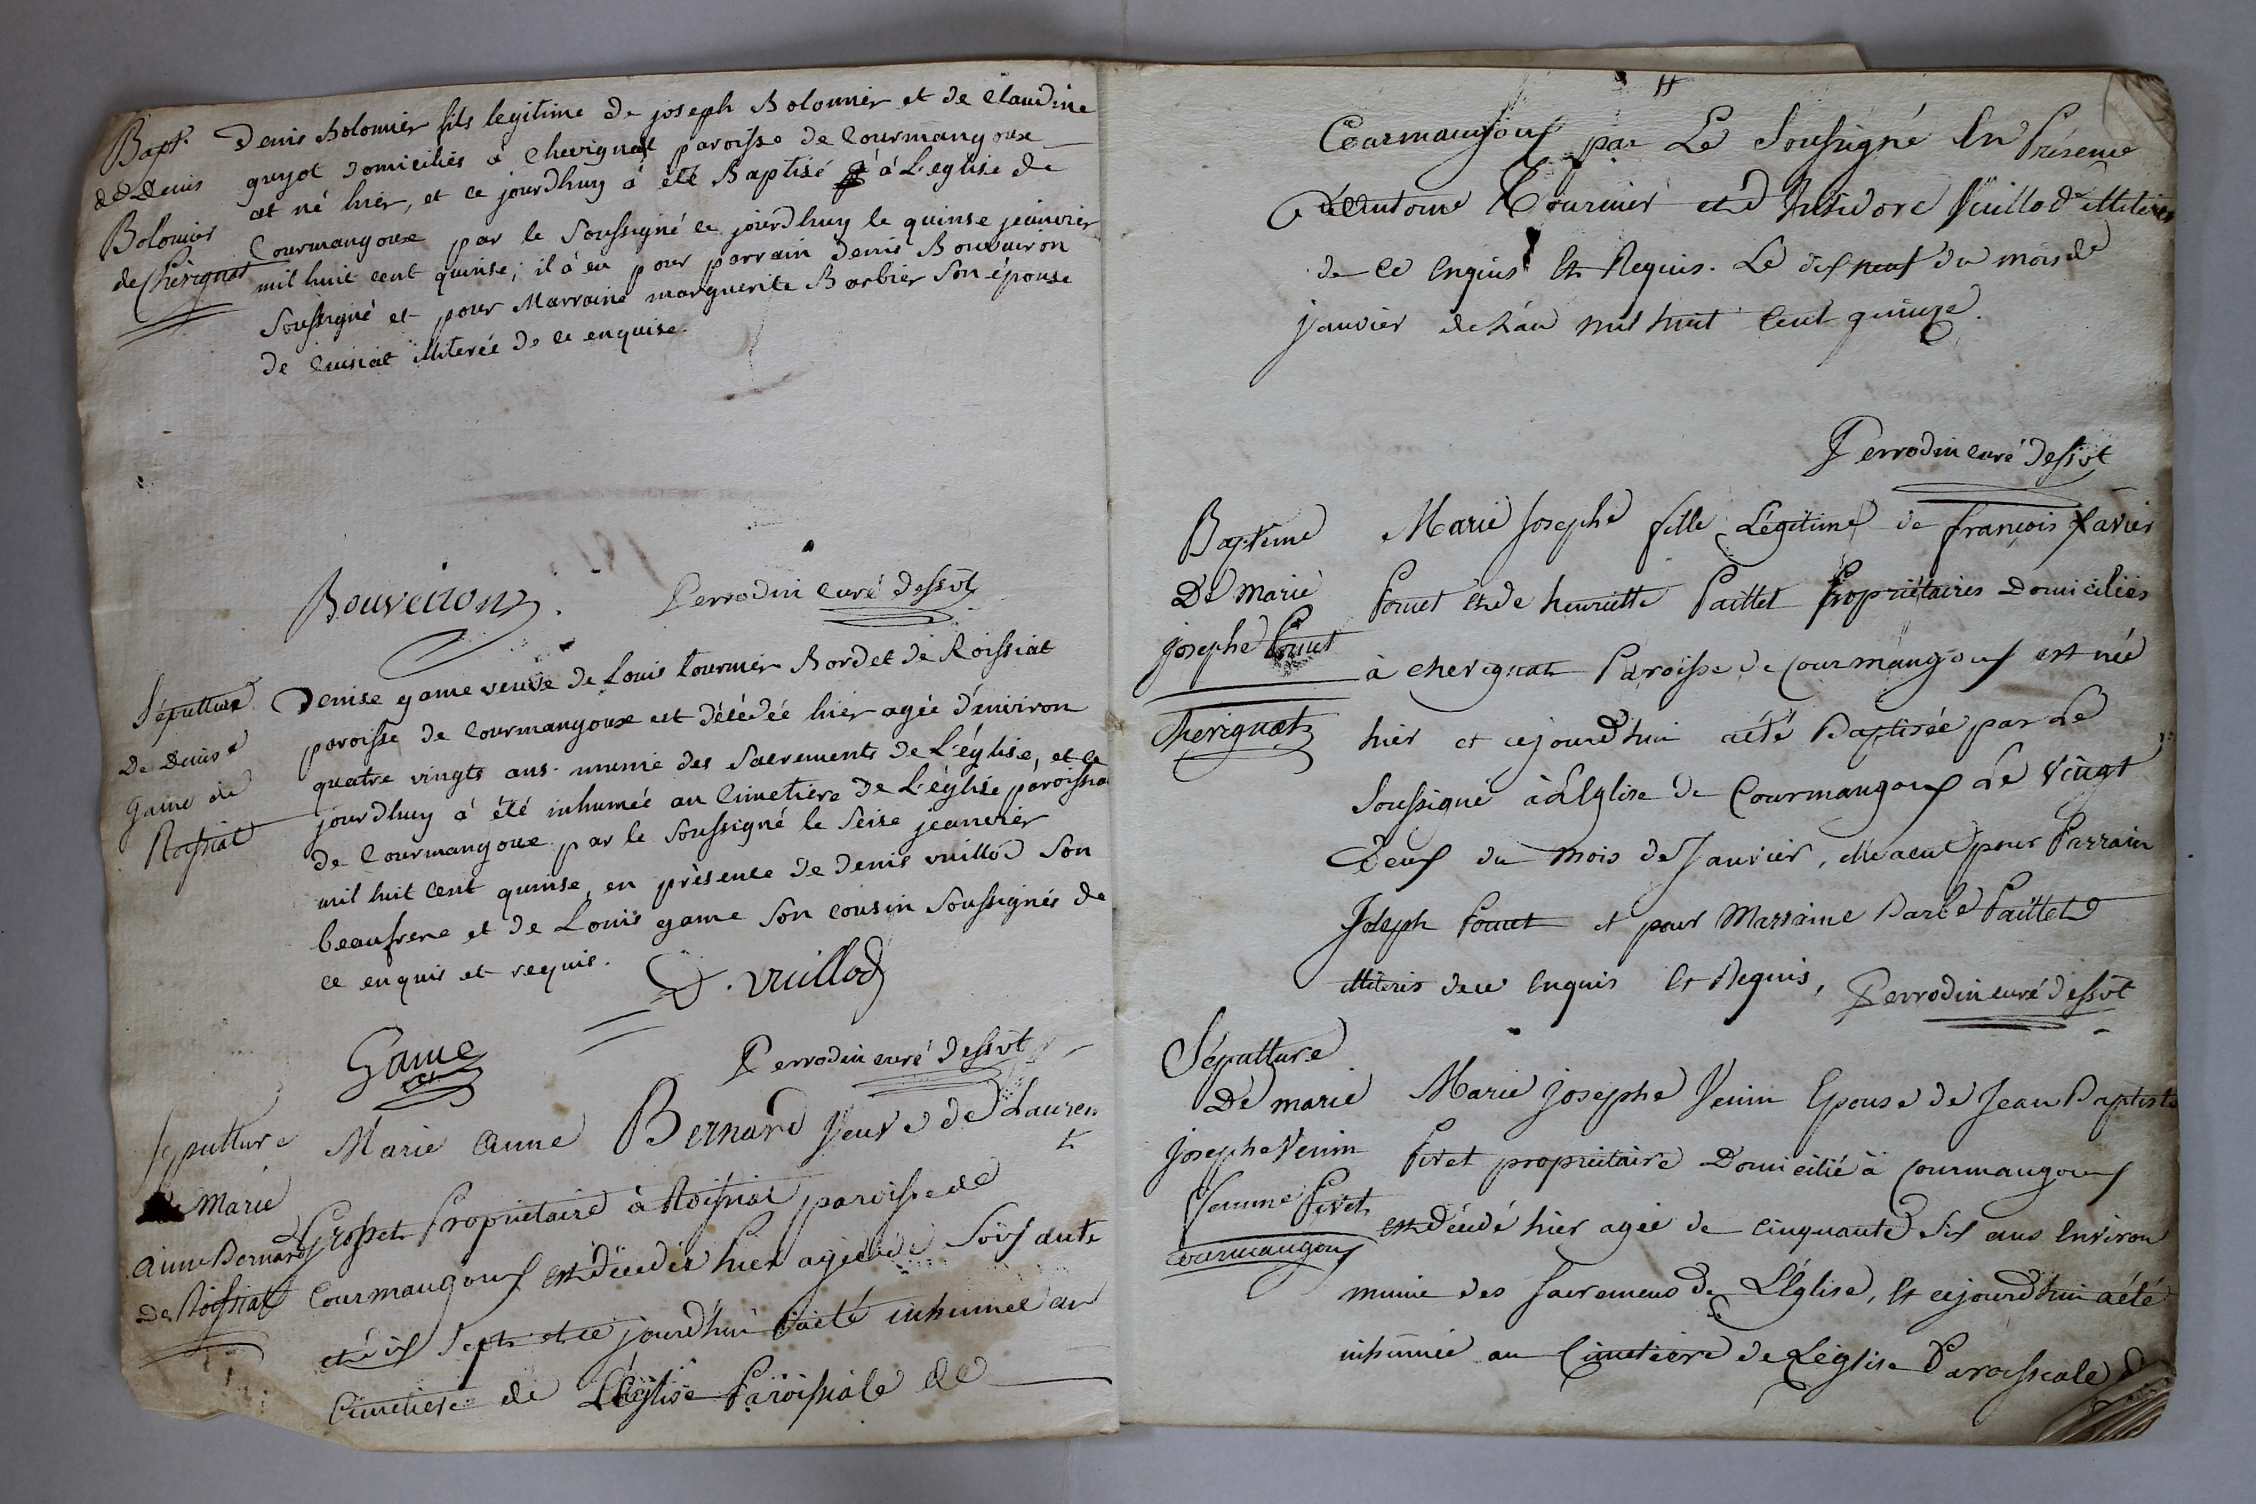 Bapt.
de Denis
Bolomier
de Chevignat
Denis Bolomier fils legitime de joseph Bolomier et de Claudine
guyot domiciliés à Chevignat paroisse de Courmangoux
est né hier, et ce jourdhuy à été Baptisé à L'eglise de
Courmangoux par le Soussigné ce jourdhuy le quinse jeanvier
mil huit cent quinse; il à eu pour parrain denis Bouvairon
Soussigné et pour Marraine marguerite Barbier Son épouse
de Cuisiat illiterée de ce enquise.
Bouveiron. Perrodin curé dessvt
Sépulture
De Denise
Game de
Roissiat
Denise game veuve de Louis tournier Bordet de Roissiat
paroisse de Courmangoux est décédée hier agée d'environ
quatre vingts ans. munie des Sacrements de L'église, et ce
jourdhuy à été inhumée au Cimetière de L'église paroissia
de Courmangoux par le Soussigné le Seise jeanvier
mil huit Cent quinse, en présence de denis vuillod Son
beaufrere et de Louis game Son cousin Soussignés de
ce enquis et requis.
D. vuillod
Game
Perrodin curé dessvt
Sepulture
de Marie
Anne Bernard
De Roissiat
Marie Anne Bernard Veuve de Lauren
t
Grosset Propriétaire à Roissiat paroisse de
Courmangoux est décédée hier agée de Soix ante
et dix Sept et ce jourd'hui à été inhumée au
Cimetiere de L'église Paroissiale de
Courmangoux par Le Soussigné En Présence
d'Antoine Tournier et d'Ansidore Vuillod illitérés
de ce enquis Et Requis. Le dix neuf du mois de
janvier de L'an mil huit cent quinze.
Perrodin curé dessvt
Baptême
De marie
josephe Pouet
Chevignat
Marie Josephe fille Légitime de françois Xavier
Pouet et de henriette Paillet Propriétaires Domiciliés
à chevignat Paroisse de Courmangoux est née
hier et cejourd'hui a été Baptisée par Le
Soussigné à L'Eglise de Courmangoux Le Vingt
Deux du mois de Janvier, elle a eut pour Parrain
Joseph Pouet et pour Marraine Barbe Paillet
illiterés de ce Enquis Et Requis, Perrodin curé dessvt
Sépulture
De marie
Josephe Venin
femme Pivet
Courmangoux
Marie Josephe Venin Epouse de Jean Baptiste
Pivet propriétaire Domicilié à Courmangoux
est Décédé hier agée de cinquante Six ans Environ
munie des Sacremens De L'Église, Et cejourd'hui a été
inhumée au Cimetiere de L'église Paroissiale de